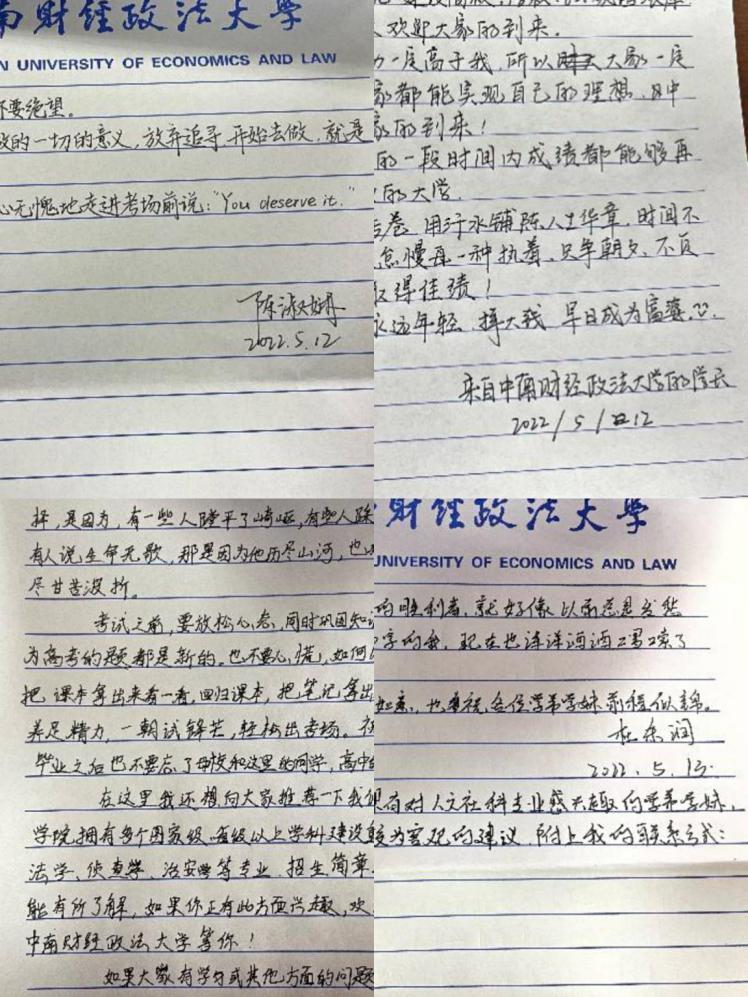 南财经政法大学
N UNIVERSITY OF ECONOMICS AND LAW
不要绝望。
的一切的意义，放弃追寻，开始去做，就是
心无愧地走进考场前说："You deserve it."
2022.5.12
欢迎大家的到来.
一度高于我，所以 大家一度
家都能实现自己的理想，日中
家的到来！
的一段时间内成绩都能够再
的大学.
卷，用汗水铺陈人生华章，时间不
怠慢再一种执着，只争朝夕，不负
取得佳绩！
永远年轻，挣大钱，早日成为富婆.
来自中南财经政法大学的学长
2022/5/12
择，是因为，有一些人蹚平了崎岖，有些人踩
有人说生命无歌，那是因为他历尽山河，也
尽甘苦波折。
考试之前，要放松心态，同时巩固知
为高考的题都是新的。也不要心慌，如何
把课本拿出来看一看，回归课本，把笔记拿出
养足精力，一朝试锋芒，轻松出考场。祝
毕业之后也不要忘了母校和这里的同学，高中
在这里我还想向大家推荐一下我
学院，拥有多个国家级、省级以上学科建设
法学、侦查学、治安学等专业，招生简章
能有所了解，如果你正有此方面兴趣，欢
中南财经政法大学等你！
如果大家有学习或其他方面的问题
财经政法大学
UNIVERSITY OF ECONOMICS AND LAW
的胜利者，就好像以前总是
字的我，现在也洋洋洒洒 了
如意，也 祝各位学弟学妹前程似锦。
2022.5.13.
有对人文社科专业感兴趣的学弟学妹，
较为客观的建议，附上我的联系方式：